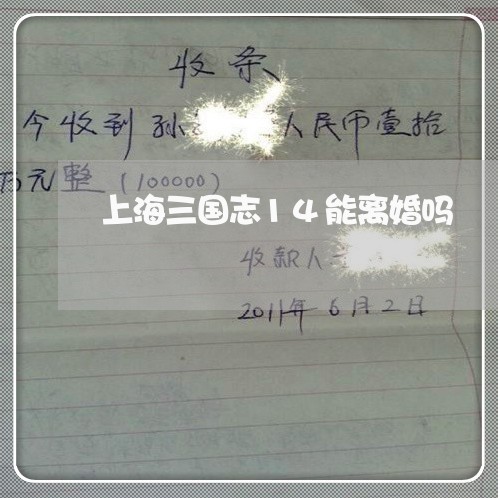 收条
今收到孙 人民币壹拾
万元整(100000)
上海三国志14能离婚吗
收款人
2011年6月2日